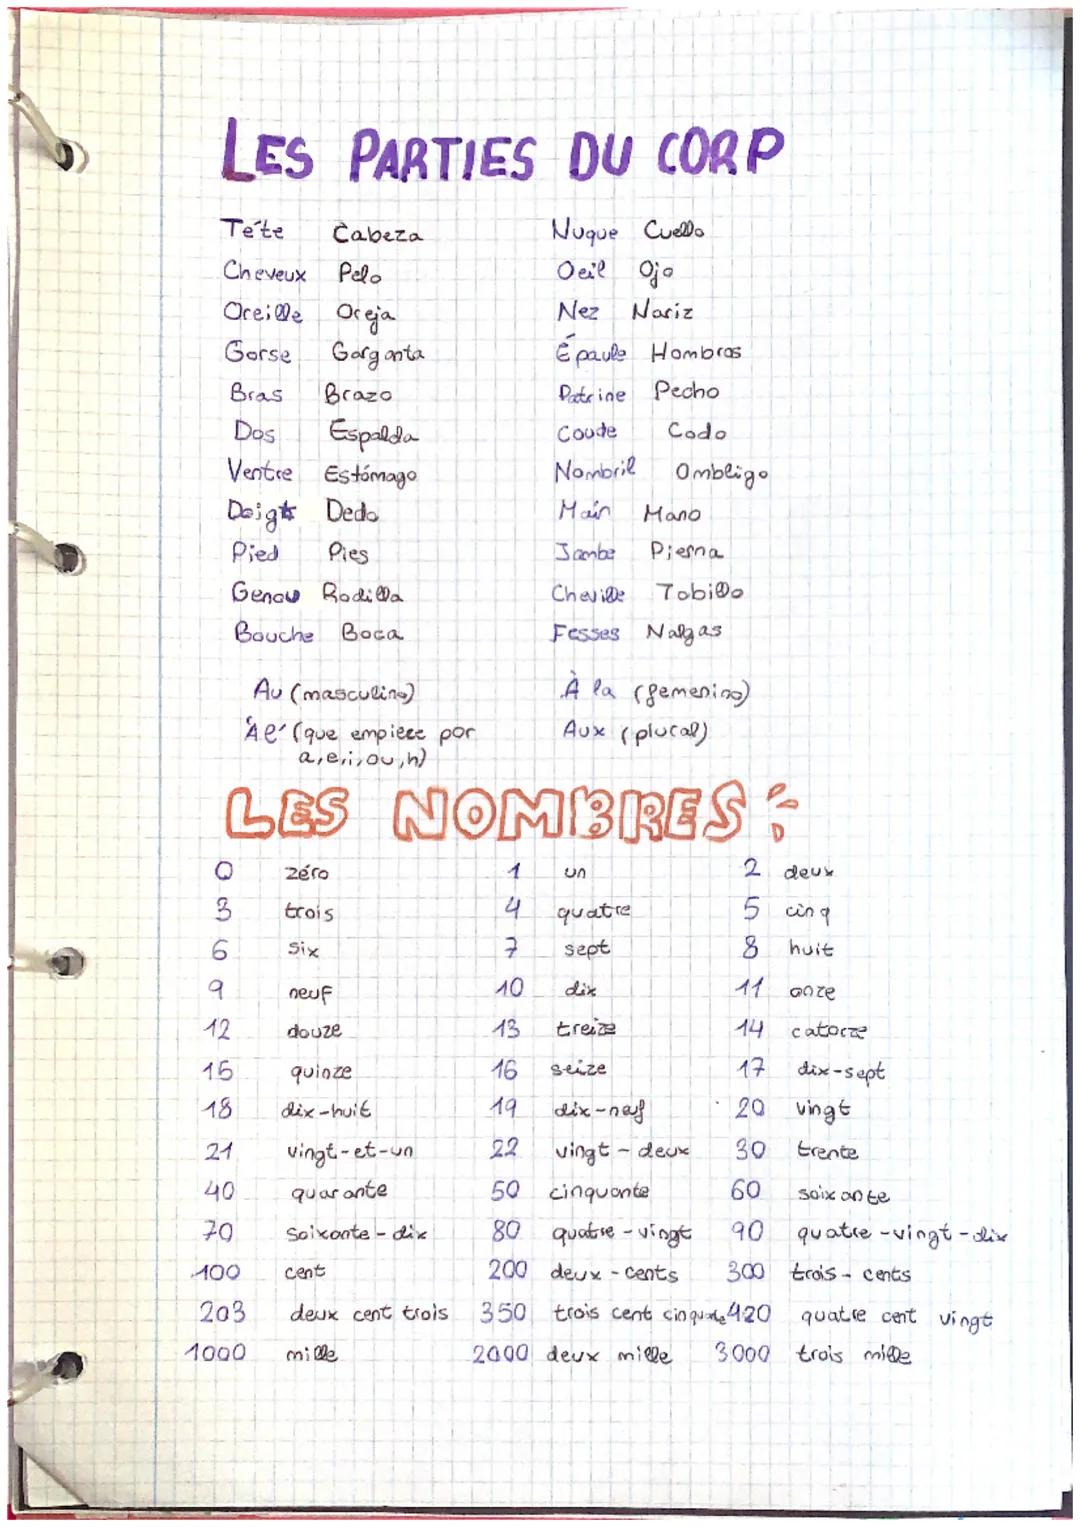 LES PARTIES DU CORP
Téte Cabeza Nuque Cuello
Cheveux Pelo Oeil Ojo
Oreille Oreja Nez Nariz
Gorse Garganta Épaule Hombros
Bras Brazo Patrine Pecho
Dos Espalda Coude Codo
Ventre Estómago Nombril Ombligo
Doigt Dedo Main Mano
Pied Pies Jambe Pierna
Genou Rodilla Cheville Tobillo
Bouche Boca Fesses Nalgas
Au (masculino) À la (femenino)
À l' (que empiece por Aux (plural)
a,e,i,ou,h)
LES NOMBRES
0 zéro 1 un 2 deux
3 trois 4 quatre 5 cinq
6 six 7 sept 8 huit
9 neuf 10 dix 11 onze
12 douze 13 treize 14 catorze
15 quinze 16 seize 17 dix-sept
18 dix-huit 19 dix-neuf 20 vingt
21 vingt-et-un 22 vingt-deux 30 trente
40 quarante 50 cinquante 60 soixante
70 soixante-dix 80 quatre-vingt 90 quatre-vingt-dix
100 cent 200 deux-cents 300 trois-cents
203 deux cent trois 350 trois cent cinquante 420 quatre cent vingt
1000 mille 2000 deux mille 3000 trois mille